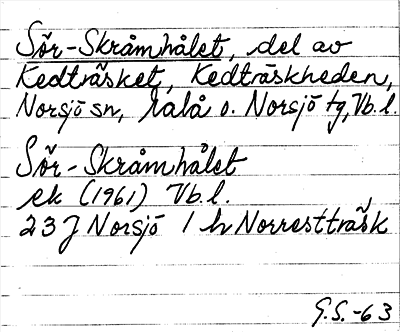 Sör-Skråmhålet, del av
Kedträsket, Kedträskheden,
Norsjö sn, Malå o. Norsjö tg, Vb.l.
Sör-Skråmhålet
ek (1961) Vb.l.
23 J Norsjö 1 h Norrestträsk
G.S.-63